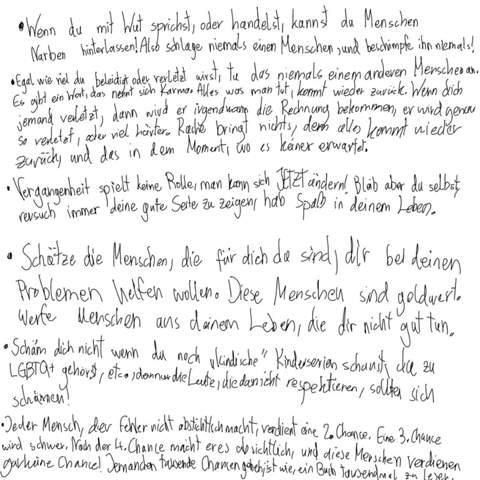 • Wenn du mit Wut sprichst, oder handelst, kannst du Menschen
Narben hinterlassen! Also schlage niemals einen Menschen, und beschimpfe ihn niemals!
• Egal wie viel du beleidigt oder verletzt wirst, tu das niemals einem anderen Menschen an.
Es gibt ein Wort, das nennt sich Karma. Alles was man tut, kommt wieder zurück. Wenn dich
jemand verletzt, dann wird er irgendwann die Rechnung bekommen, er wird genau
so verletzt, oder viel härter. Rache bringt nichts, denn alles kommt wieder
zurück, und das in dem Moment, wo es keiner erwartet.
• Vergangenheit spielt keine Rolle, man kann sich JETZT ändern! Bleib aber du selbst,
versuch immer deine gute Seite zu zeigen, hab Spaß in deinem Leben.
• Schätze die Menschen, die für dich da sind, dir bei deinen
Problemen helfen wollen. Diese Menschen sind goldwert.
Werfe Menschen aus deinem Leben, die dir nicht gut tun.
• Schäm dich nicht wenn du noch „kindische" Kinderserien schaust, du zu
LGBTQ+ gehörst, etc., denn nur die Leute, die das nicht respektieren, sollten sich
schämen!
• Jeder Mensch, der Fehler nicht absichtlich macht, verdient eine 2. Chance. Eine 3. Chance
wird schwer. Nach der 4. Chance macht er es absichtlich, und diese Menschen verdienen
garkeine Chance! Jemanden tausende Chancen geben, ist wie, ein Buch tausendmal zu lesen.